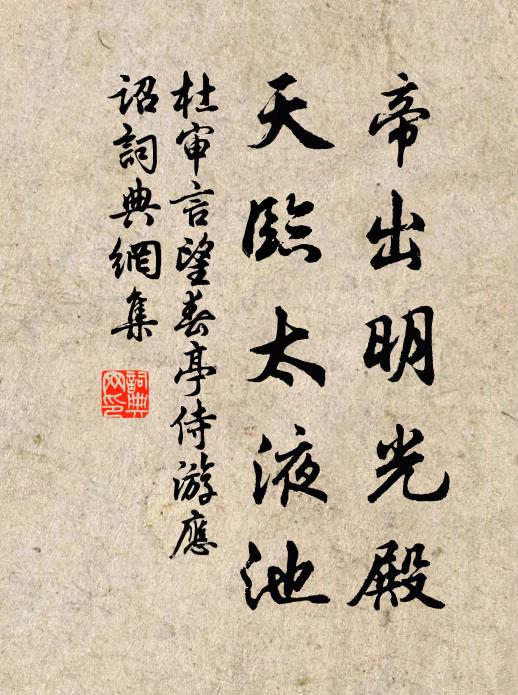 帝出明光殿
天臨太液池
杜审言望春亭侍游應
詔詞典網集
詞典网印